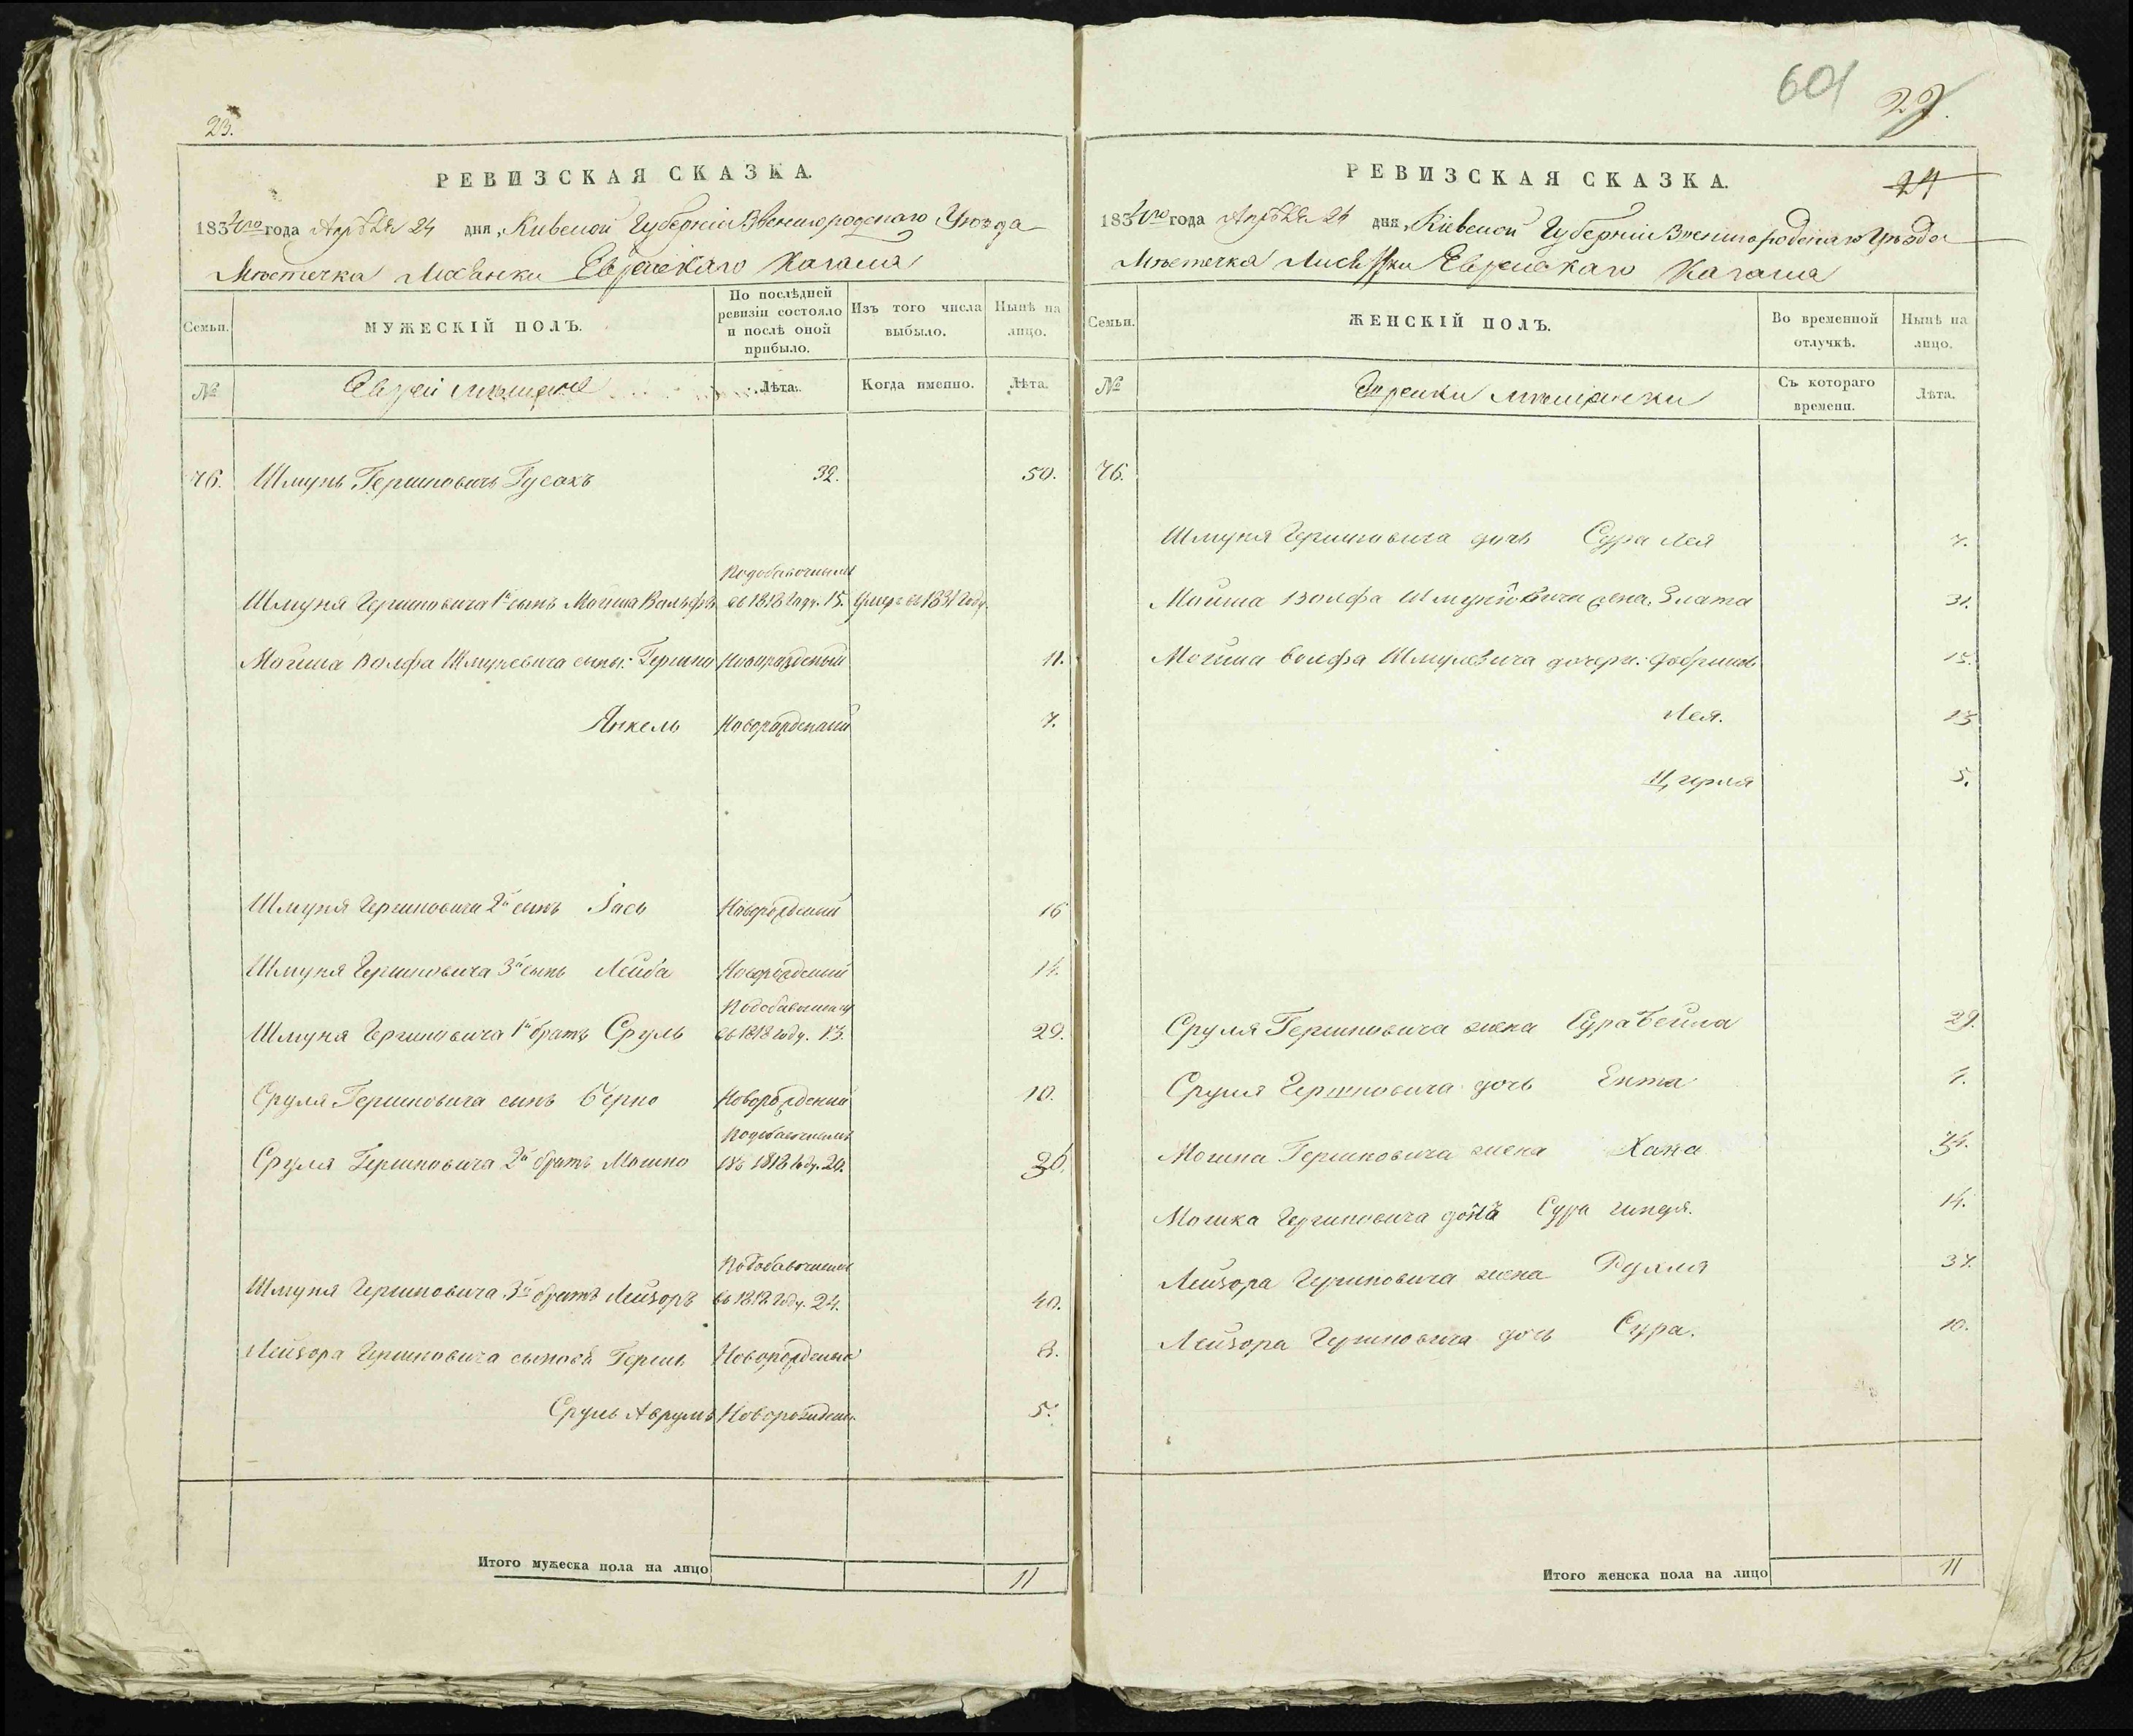 23.
РЕВИЗСКАЯ СКАЗКА.
1834го года Апрѣля 24 дня, Киевской Губерніи Звенигородскаго Уѣзда
Мѣстечка Лисянки Еврейскаго Кагала
Семьи.
МУЖЕСКІЙ ПОЛЪ.
По послѣдней ревизіи состояло и послѣ оной прибыло.
Изъ того числа выбыло.
Нынѣ на лицо.
№
Евреи мѣщане
Лѣта.
Когда именно.
Лѣта.
76. Шмунь Гершковичь Гусакъ 32. 50.
Подобавочнымъ
Шмуня Гершковича 1й сынъ Мойша Вольфъ въ 1818 году. 15. Умеръ въ 1831 году.
Мойша Волфа Шмулевича сыны: Гершко Новорожденый 11.
Янкель Новорожденый 7.
Шмуня Гершковича 2й сынъ Іась Новорожденый 16
Шмуня Гершковича 3й сынъ Лейба Новорожденый 14.
Подобавочному
Шмуня Гершковича 1й братъ Сруль въ 1818 году. 13. 29.
Сруля Гершковича сынъ Берко Новорожденый 10.
Подобавочнымъ
Сруля Гершковича 2й братъ Мошко въ 1818 году. 20. 36.
Подобавочнымъ
Шмуня Гершковича 3й братъ Лейзоръ въ 1818 году. 24. 40.
Лейзора Гершковича сыновя Герш Новорожденый 8.
Сруль Аврумъ Новорожден. 5.
Итого мужеска пола на лицо 11
601
24
РЕВИЗСКАЯ СКАЗКА.
1834го года Апрѣля 24 дня, Кіевской Губерніи Звенигородскаго Уѣзда
Мѣстечка Лисянки Еврейскаго Кагала
Семьи.
ЖЕНСКІЙ ПОЛЪ.
Во временной отлучкѣ.
Нынѣ на лицо.
№
Еврейки мѣщанки
Съ котораго времени.
Лѣта.
76.
Шмуня Гершковича дочь Сура Лея 7.
Мойша Волфа Шмунiовича жена Злата 31.
Мойша Волфа Шмулевича дочери: Добрышъ 15.
Лея. 13
Ципря 5.
Сруля Гершковича жена Сура Бейла 29.
Сруля Гершковича дочь Ента 1.
Мошка Гершковича жена Хана 34.
Мошка Гершковича дочь Сура Гинда. 14.
Лейзора Гершковича жена Рухля 37.
Лейзора Гершковича дочь Сура. 10.
Итого женска пола на лицо 11